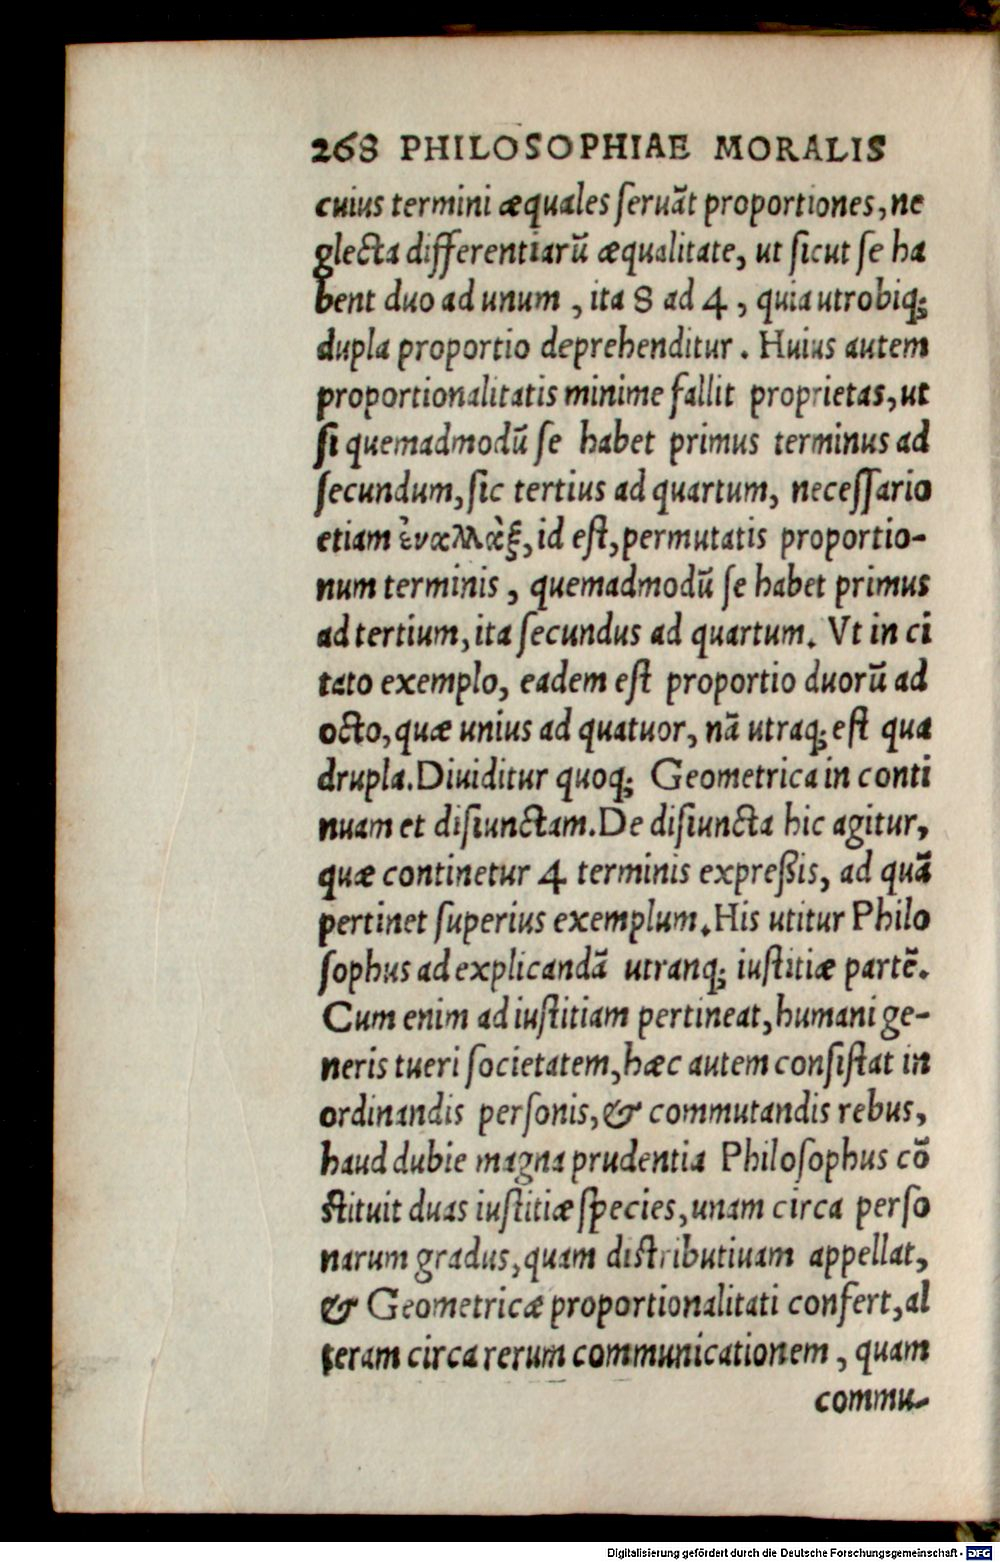 268 PHILOSOPHIAE MORALIS
cuius termini æquales ſeruãt proportiones, ne
glecta differentiarũ æqualitate, ut ſicut ſe ha
bent duo ad unum , ita 8 ad 4 , quia utrobiq;
dupla proportio deprehenditur . Huius autem
proportionalitatis minime fallit proprietas, ut
ſi quemadmodũ ſe habet primus terminus ad
ſecundum, ſic tertius ad quartum, neceſſario
etiam ἐναλλὰξ, id eſt, permutatis proportio-
num terminis , quemadmodũ ſe habet primus
ad tertium, ita ſecundus ad quartum. Vt in ci
tato exemplo, eadem eſt proportio duorũ ad
octo, quæ unius ad quatuor, nã utraq; eſt qua
drupla. Diuiditur quoq; Geometrica in conti
nuam et diſiunctam. De diſiuncta hic agitur,
quæ continetur 4 terminis expreßis, ad quã
pertinet ſuperius exemplum. His utitur Philo
ſophus ad explicandã utranq; iuſtitiæ partẽ.
Cum enim ad iuſtitiam pertineat, humani ge-
neris tueri ſocietatem, hæc autem conſiſtat in
ordinandis perſonis, & commutandis rebus,
haud dubie magna prudentia Philoſophus cõ
ſtituit duas iuſtitiæ ſpecies, unam circa perſo
narum gradus, quam diſtributiuam appellat,
& Geometricæ proportionalitati confert, al
teram circa rerum communicationem , quam
commu-
Digitalisierung gefördert durch die Deutsche Forschungsgemeinschaft - DFG